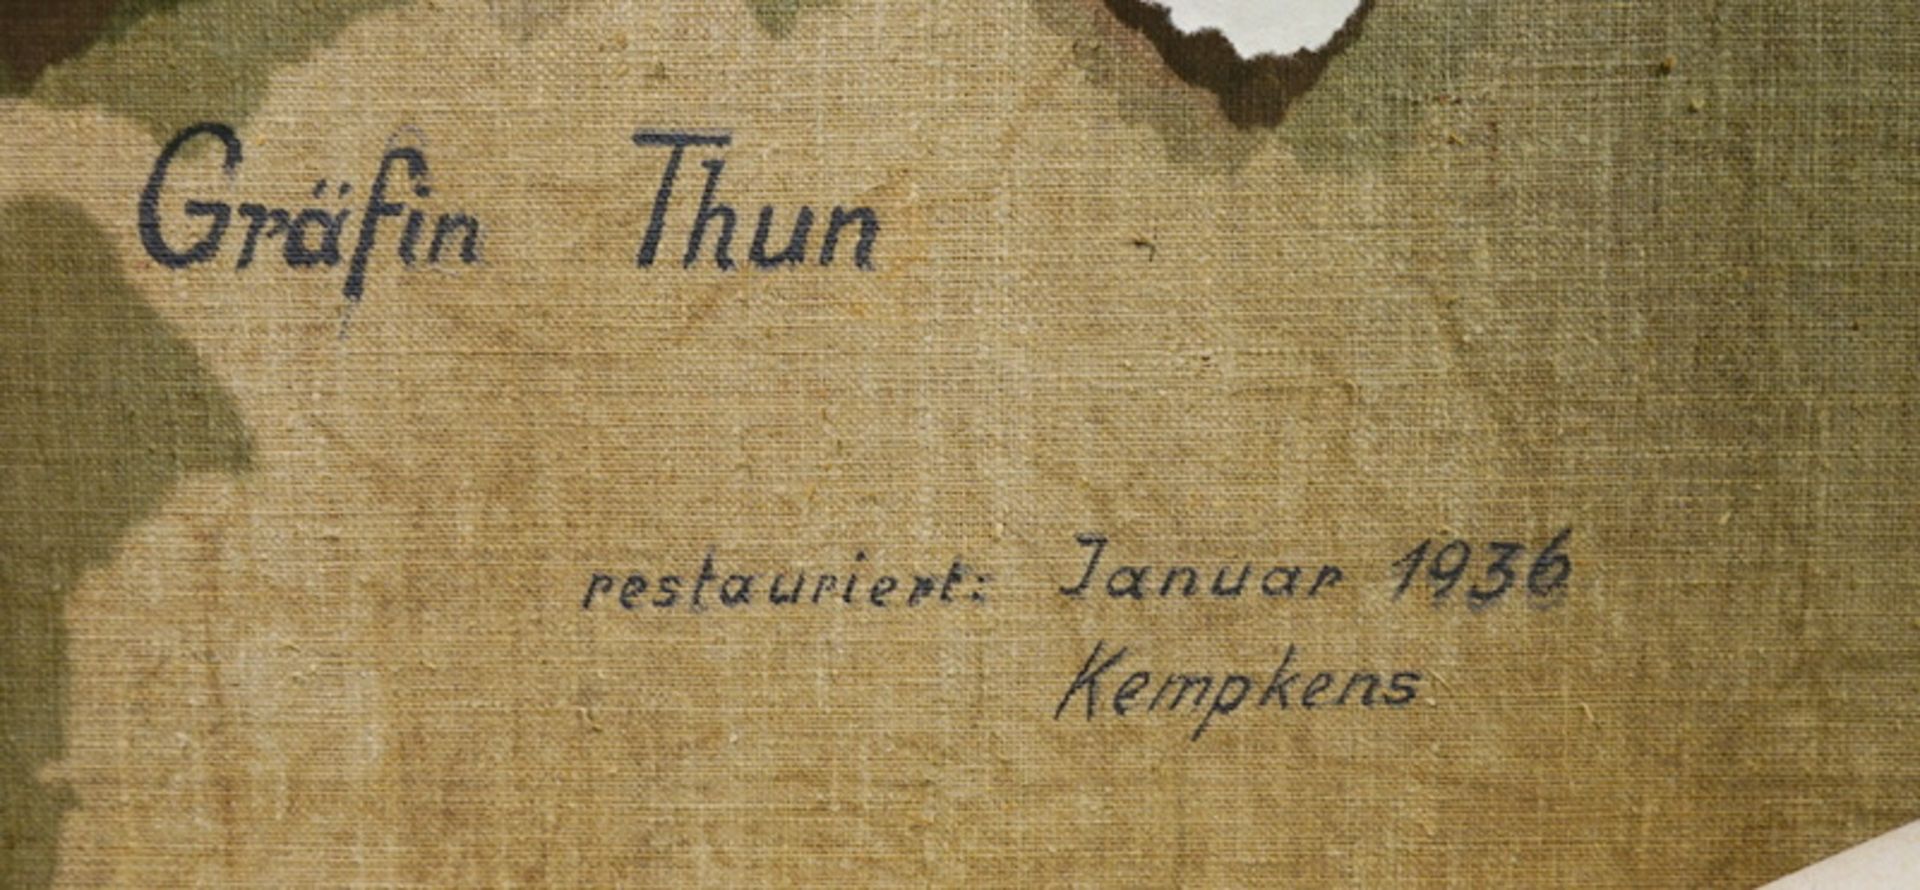 Gräfin Thun
restauriert: Januar 1936
Kempkens